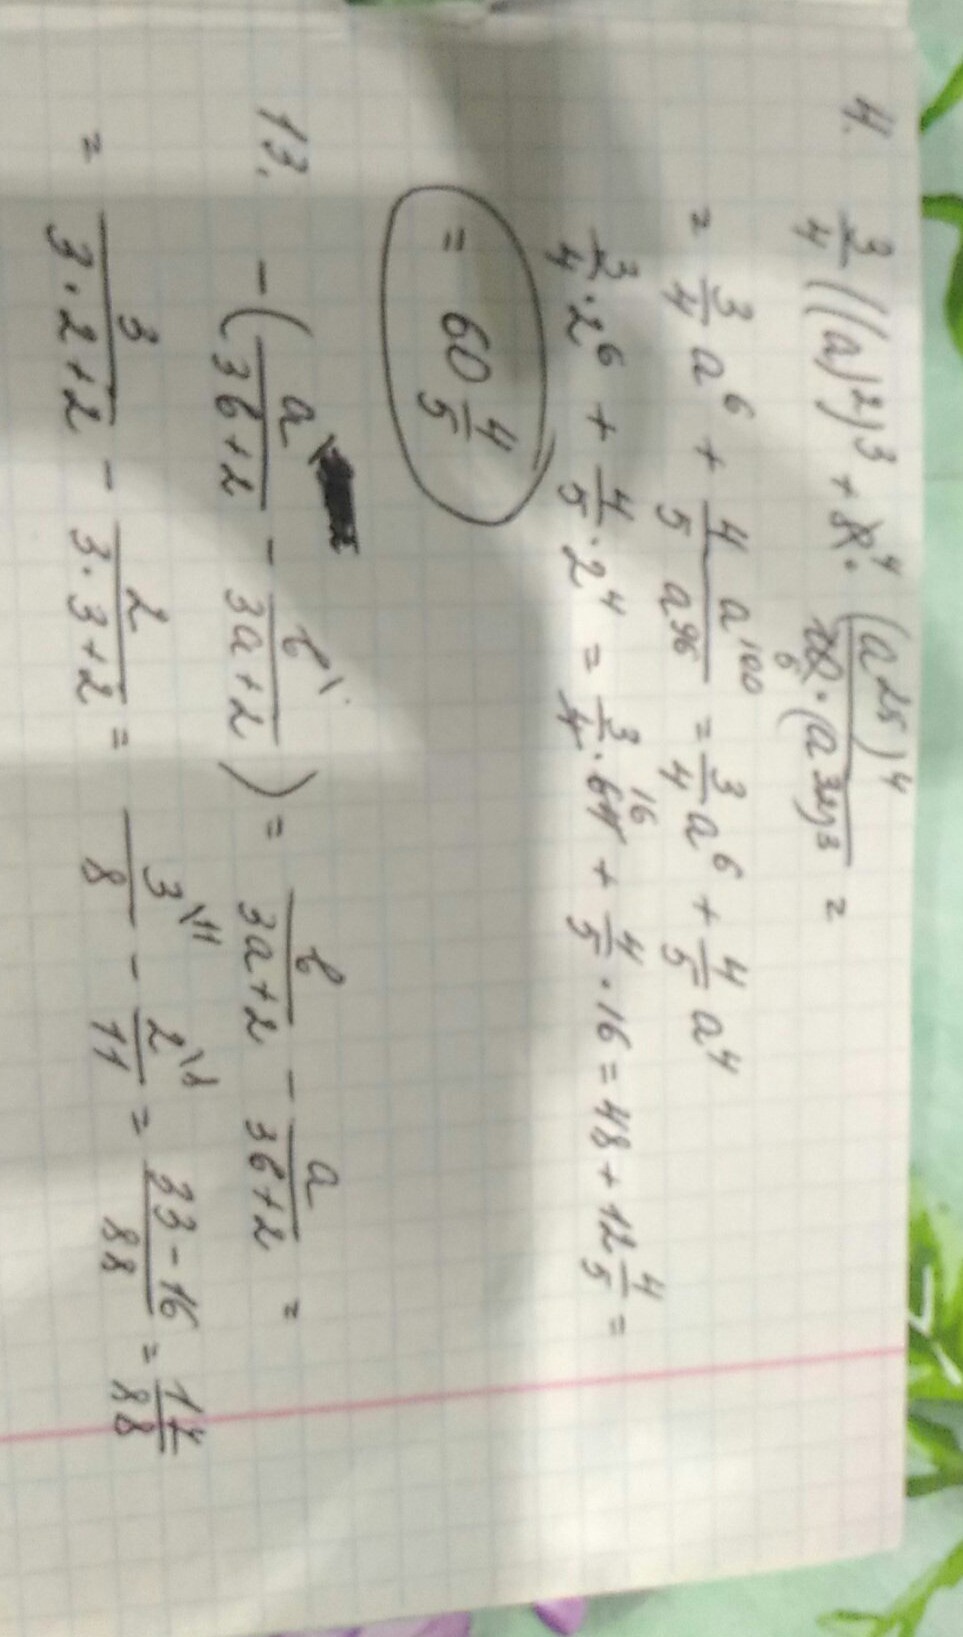 4. 3/4 ((a)²)³ + 8⁴ · (a²⁵)⁴ / (a³²)³ =
= 3/4 a⁶ + 4/5 a¹⁰⁰/a⁹⁶ = 3/4 a⁶ + 4/5 a⁴
3/4 · 2⁶ + 4/5 · 2⁴ = 3/4 · 64 16 + 4/5 · 16 = 48 + 12 4/5 =
= 60 4/5
13. - ( a / 3b+2 - b / 3a+2 ) = b / 3a+2 - a / 3b+2 =
= 3 / 3·2+2 - 2 / 3·3+2 = 3\11 / 8 - 2\8 / 11 = 33-16 / 88 = 17/88